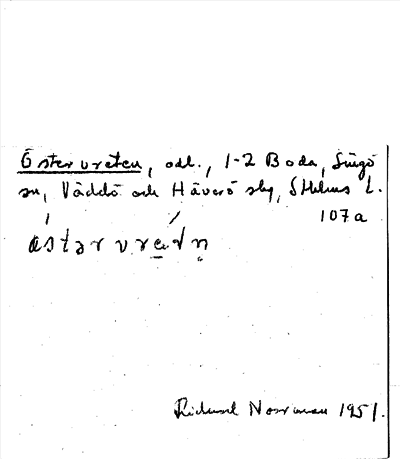 Östervreten, odl., 1-2 Boda, Singö
sn, Väddö och Häverö skg, Sthlms L.
107a
östər vretn̥
Rickard Norrman 1951.